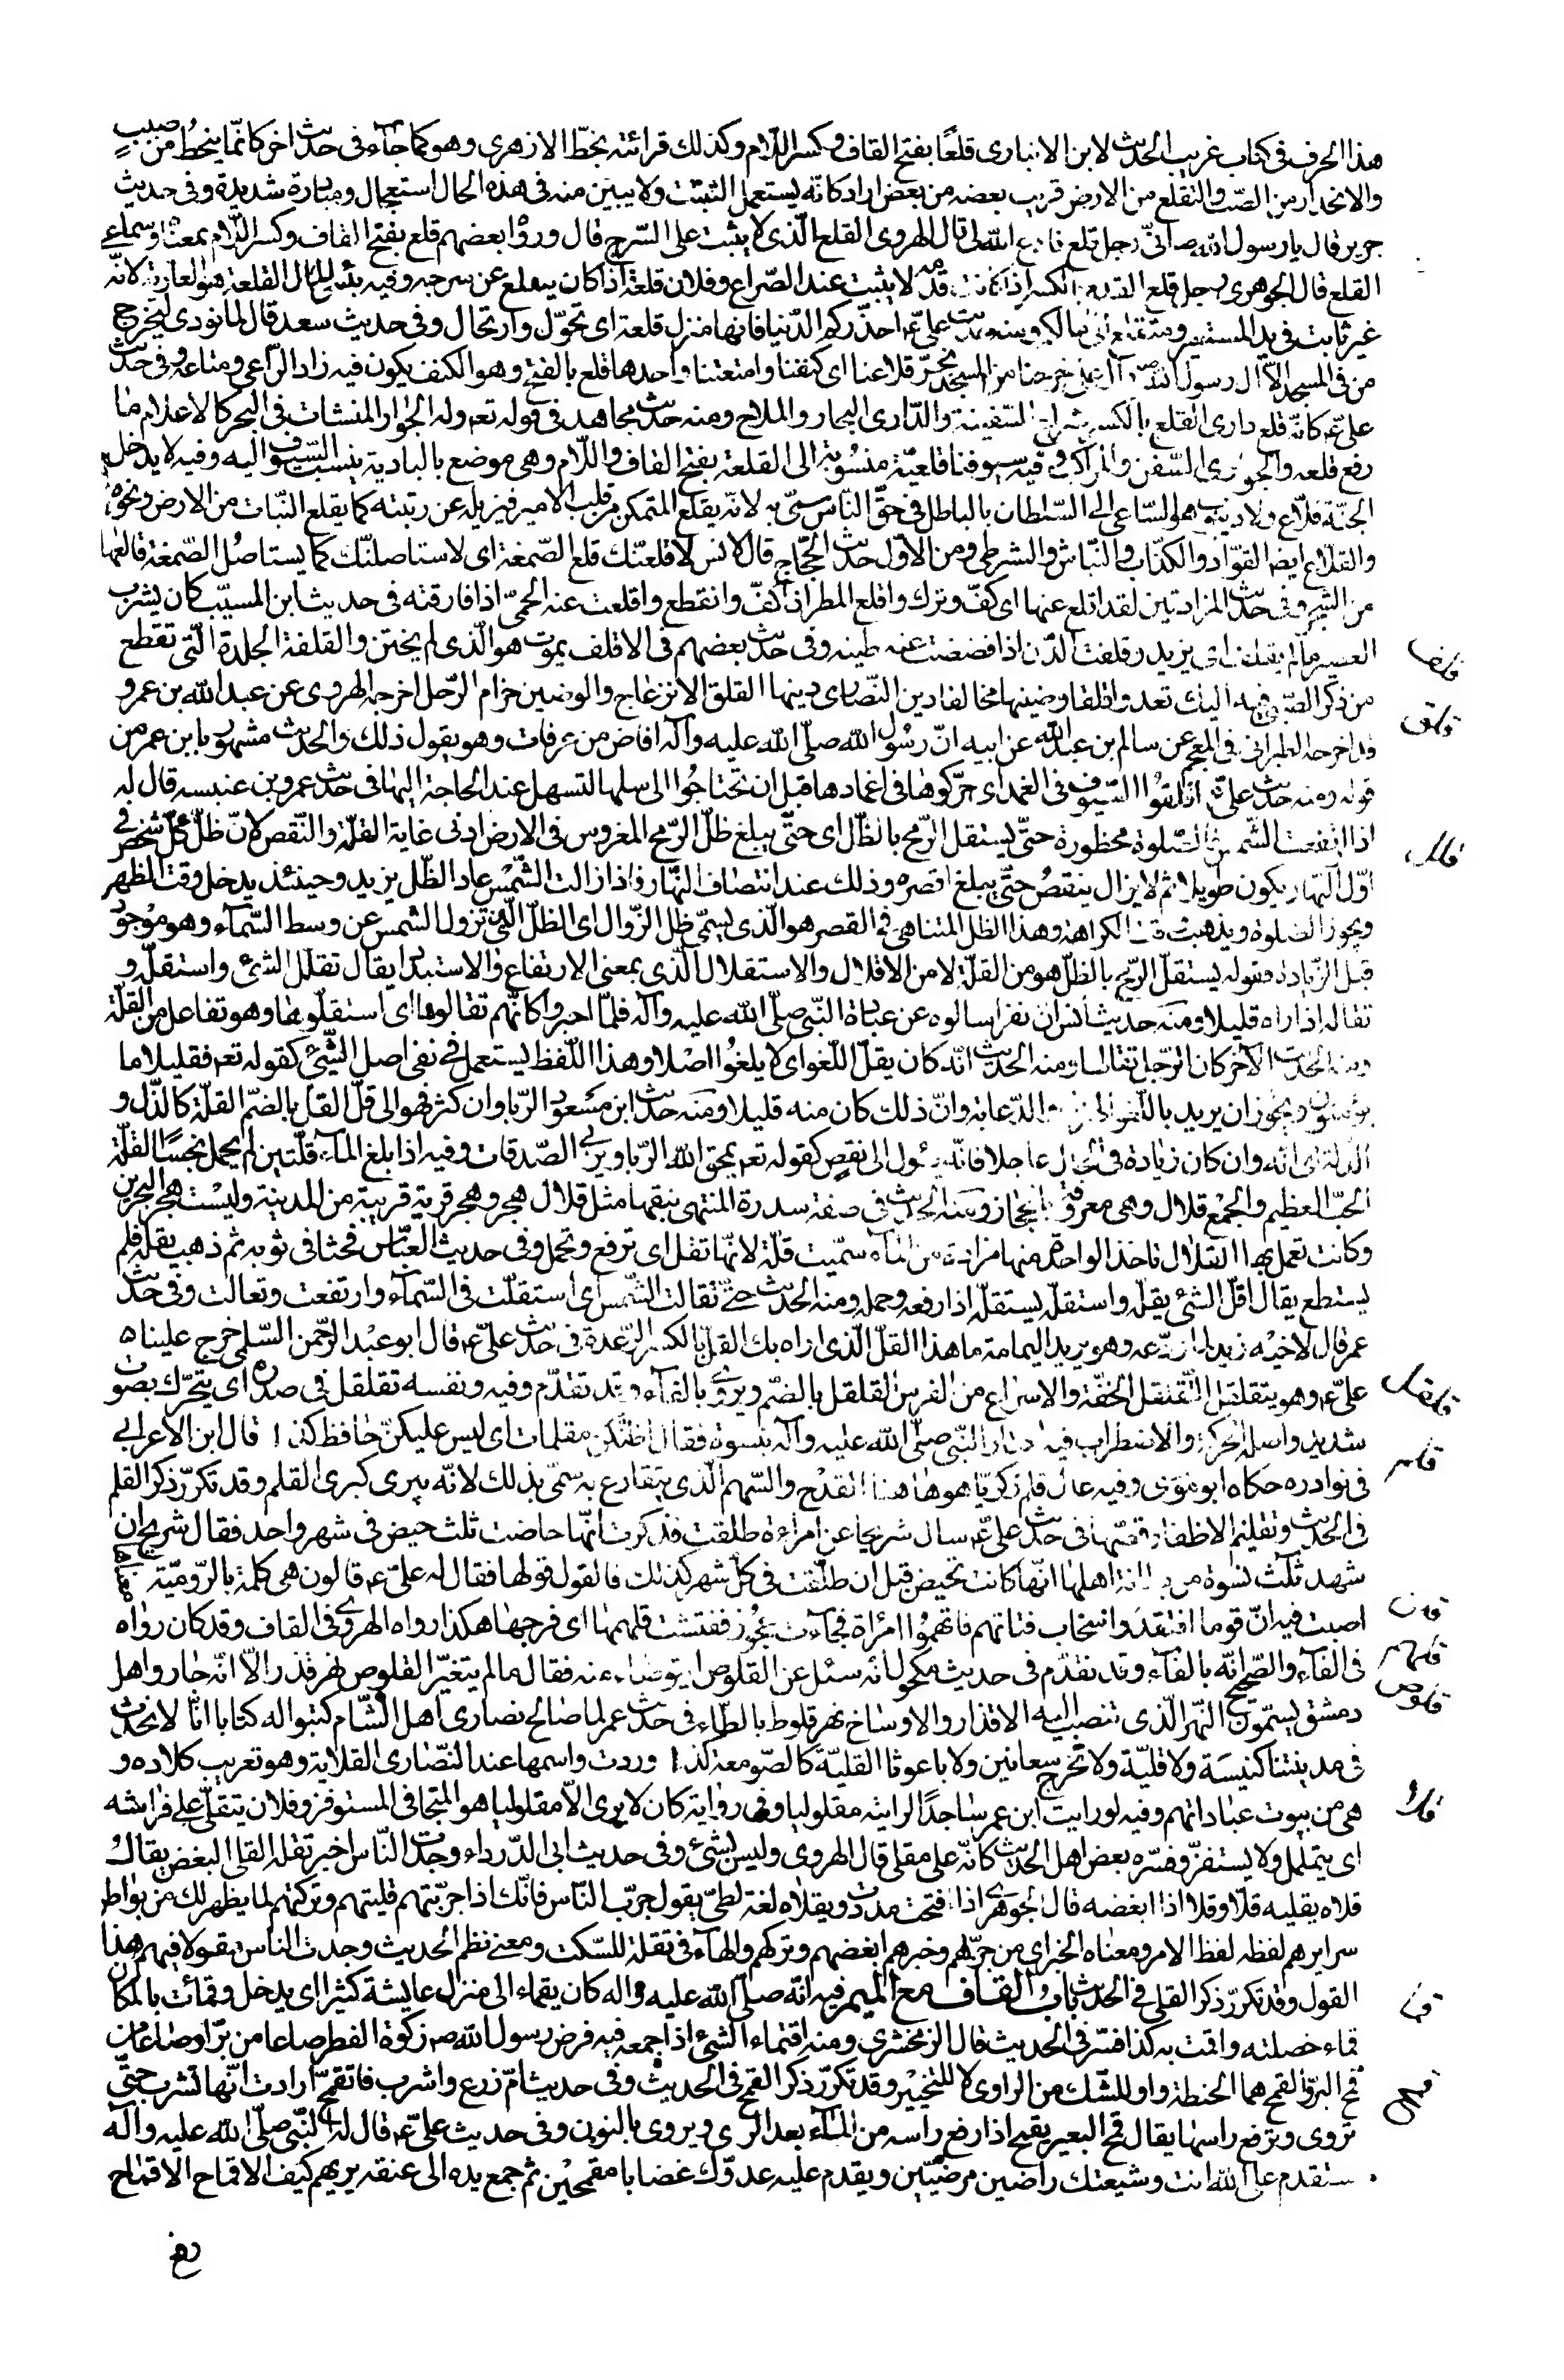 هذا الحرف فى كتاب غريب الحديث لابن الانبارى قلعًا بفتح القاف وكسر اللام وكذلك قرائته بخطّ الازهرى وهو كما جآء فى حديث اخر كانّما ينحطّ من صببٍ
والانحدار من الصبّ والتقلع من الارض قريب بعضه من بعض اراد كانّه يستعمل التثبّت ولا يبين منه فى هذه الحال استعجال ومبادرة شديدة وفى حديث
جرير قال يا رسول الله ص انّى رجل قلع فادع الله لى قال الهروى القلع الّذى لا يثبت على السّرج قال وروٰا بعضهم قلع بفتح القاف وكسر اللّام بمعناه وسماعى
القلع قال الجوهرى رجل قلع القدم بالكسر اذا كانت قدمه لا يثبت عند الصّراع وفلان قلعة اذا كان يتقلع عن سرجه وفيه بئس المال القلعة هو العارية لانّه
غير ثابت فى يد المستعير ومنه حديث علىّ ع احذّركم الدّنيا فانها منزل قلعة اى تحوّل وارتحال وفى حديث سعد قال لما نودى ليخرج
من فى المسجد الّا ال رسول الله ص وآل على خرجنا من المسجد نجرّ قلاعنا اى كنفنا وامتعتنا واحدها قلع بالفتح وهو الكنف يكون فيه زاد الرّاعى ومتاعه وفى حديث
علىّ ع كانّه قلع دارى القلع بالكسر شراع السّفينة والدّارى البحار والملاح ومنه حديث مجاهد فى قوله تعم وله الجوار المنشات فى البحر كالاعلام ما
رفع قلعه والجوارى السّفن والمراكب وفيه سيوفنا قلعيّة منسُوبة الى القلعة بفتح القاف واللّام وهى موضع بالبادية ينسب السّيوف اليه وفيه لا يدخل
الجنّة قلّاع ولا ديبوب هو السّاعى الى السّلطان بالباطل فى حقّ النّاس سمّى به لانّه يقلع المتمكن من قلب الامير فيزيله عن رتبته كما يقلع النّبات من الارض ونحوه
والقلّاع ايضا القوّاد والكذّاب والنّباش والشرطى ومن الاول حديث الحجّاج قال لانس لاقلعنّك قلع الصّمغة اى لاستاصلنّك كما يستاصُل الصّمغة قالعها
من الشجر وفى حديث المزادتين لقد اقلع عنها اى كفّ وترك واقلع المطر اذا كفّ وانقطع واقلعت عنه الحمىّ اذا فارقته فى حديث ابن المسيّب كان يشرب
العصير ما لم يقلف اى يزبد وقلفت الدّن اذا فضضت عنه طينه وفى حديث بعضهم فى الاقلف يموت هو الّذى لم يختتن والقلفة الجلدة الّتى تقطع
من ذكر الصّبى فيه اليك تعدو قلقا وضينها مخالفا دين النّصارى دينها القلق الانزعاج والوضين حزام الرّحل اخرجه الهروى عن عبد الله بن عمر و
قد اخرجه الطبرانى فى المعجم عن سالم بن عبد الله عن ابيه انّ رسُول الله صلّى الله عليه وآله افاض من عرفات وهو يقول ذلك والحديث مشهور بابن عمر من
قوله ومنه حديث علىّ ع اقلقوُا السّيوف فى الغمد اى حرّكوها فى اغمادها قبل ان تحتاجُوا الى سلها لتسهل عند الحاجة اليها فى حديث عمرو بن عنبسه قال له
اذا ارتفعت الشّمس فالصّلوة محظورة حتىّ يستقل الرّمح بالظّل اى حتىّ يبلغ ظلّ الرّمح المغروس فى الارض ادنى غاية القلّة والنّقص لانّ ظلّ كلّ شخص فى
اوّل النّهار يكون طويلا ثم لا يزال ينقصُ حتىّ يبلغ اقصره وذلك عند انتصاف النّهار فاذا زالت الشّمس عاد الظّل يزيد وحينئذ يدخل وقت الظهر
ويجوز الصّلوة ويذهب وقت الكراهة وهذا الظل المتناهى فى القصر هو الّذى يسمّى ظل الزّوال اى الظلّ الّذى تزول الشمس عن وسط السّماء وهو موجودٌ
قبل الزّيادة فقوله يستقل الرّمح بالظّل هو من القلّة لا من الاقلال والاستقلال الّذى بمعنى الارتفاع والاستبداد يقال تقلّل الشئ واستقلّه و
تقالّه اذا راه قليلا ومنه حديث انس ان نفرا سالوه عن عبادة النّبى صلّى الله عليه وآله فلمّا اخبروا كانّهم تقالّوها اى استقلّوها وهو تفاعل من القلّة
ومنه الحديث الآخر كان الرّجل تقالّها ومنه الحديث انّه كان يقلّ اللّغو اى لا يلغُوا اصلا وهذا اللّفظ يستعمل فى نفى اصل الشّئ كقوله تعم فقليلا ما
يؤمنون ويجوز ان يريد باللّغو الهزل والدّعابة وانّ ذلك كان منه قليلا ومنه حديث ابن مسعود الرّبا وان كثر فهو الى قلّ القلّ بالضمّ القلّة كالذّل و
الذّلّة اى انّه وان كان زيادة فى المال عاجلا فانّه يئول الى نقص كقوله تعم يمحق الله الرّبا ويربى الصّدقات وفيه اذا بلغ المآء قلّتين لم يحمل نجسًا القلّة
الحبّ العظيم والجمع قلال وهى معروفة بالحجاز ومنه الحديث فى صفة سدرة المنتهى نبقها مثل قلال هجر وهجر قرية قريبة من المدينة وليست هجر البحرين
وكانت تعمل بها القلال تاخذ الواحدة منها مزادة من المآء سمّيت قلّة لانّها تقل اى ترفع وتحمل وفى حديث العبّاس فحثا فى ثوبه ثم ذهب يقلّه فلم
يستطع يقال اقلّ الشئ يقلّه واستقلّه يستقلّه اذا رفعه وحمله ومنه الحديث حتىّ تقالت الشّمس اى استقلّت فى السّمآء وارتفعت وتعالت وفى حديث
عمر قال لاخيه زيد لما ودّعه وهو يريد اليمامة ما هذا القلّ الّذى اراه بك القلّ بالكسر الرّعدة فى حديث علىّ ع قال ابو عبد الرّحمن السّلمى خرج علينا
علىّ ع وهو يتقلقل التّقلقل الخفّة والاسراع من الفرس القلقل بالضّم ويروى بالفآء وقد تقدّم وفيه ونفسه تقلقل فى صدره اى يتحرّك بصوت
شديد واصله الحركة والاضطراب فيه اجتاز النّبى صلّى الله عليه وآله بنسوة فقال اظنّكن مقلمات اى ليس عليكنّ حافظ كذا قال ابن الاعرابى
فى نوادره حكاه ابو موسى وفيه عال قلم زكريّا هو هٰاهنا القدح والسّهم الّذى يتقارع به سمّى بذلك لانّه يبرى كبرى القلم وقد تكرّر ذكر القلم
فى الحديث وتقليم الاظفار قصّها فى حديث علىّ ع سال شريحا عن امراءة طلقت فذكرت انّها حاضت ثلث حيض فى شهر واحد فقال شريح ان
شهد ثلٰث نسُوة من بطانة اهلها انّها كانت تحيض قبل ان طلّقت فى كلّ شهر كذلك فالقول قولها فقال له علىّ ع قالون هى كلمة بالرّوميّة معناها
اصبت فيه انّ قوما افتقدوا سخاب فتاتهم فاتهموُا امرٔاة فجآءت عجُوز ففتشت قلهمها اى فرجها هكذا رواه الهروى فى القاف وقد كان رواه
فى الفآء والصّحيح انّه بالفآء وقد تقدّم فى حديث مكحول انّه سئل عن القلوص ايتوضاء منه فقال ما لم يتغيّر القلوص نهر قذر الّا انّه جار واهل
دمشق يسمّون النّهر الّذى تنصب اليه الاقذار والاوساخ نهر قلوط بالطّاء فى حديث عمر لما صالح نصارى اهل الشّام كتبوا له كتابا انّا لا نحدث
فى مدينتنا كنيسَة ولا قليّة ولا تخرج سعانين ولا باعوثا القليّة كالصّومعة كذا وردت واسمها عند النّصارى القلاية وهو تعريب كلاده و
هى من بيوت عباداتهم وفيه لو رايت ابن عمر ساجدًا لرايته مقلوليا وفى رواية كان لا يرى الّا مقلوليا هو المتجافى المستوفز وفلان يتقلّى على فراشه
اى يتململ ولا يستفزّ وفسّره بعض اهل الحديث كانّه على مقلى قال الهروى وليس بشئ وفى حديث ابى الدّرداء وجدت النّاس اخبر تقله القلى البغض يقال
قلاه يقليه قلا وقلا اذا ابغضه قال الجوهرى اذا فتحت مددت ويقلاه لغة لطىّ يقول جرّب النّاس فانّك اذا جرّبتهم قليتهم وتركتهم لما يظهر لك من بواطن
سرايرهم لفظه لفظ الامر ومعناه الخبر اى من جرّبهم وخبرهم ابغضهم وتركهم والهآء فى تقلة للسّكت ومعنى نظم الحديث وجدت الناس مقولا فيهم هذا
القول وقد تكرّر ذكر القلى فى الحديث باب القاف مع الميم فيه انّه صلّى الله عليه واله كان يقماء الى منزل عايشة كثيرا اى يدخل وقمائت بالمكان
قماء دخلته واقمت به كذا فسّر فى الحديث قال الزمخشرى ومنه اقتماء الشئ اذا جمعه فيه فرض رسول الله ص زكوة الفطر صاعا من برّ او صاعا من
قمح البرّ والقمح هما الحنطة واو للشّك من الراوى لا للتّخيير وقد تكرّر ذكر القمح فى الحديث وفى حديث امّ زرع واشرب فاتقمّح ارادت انّها تشرب حتىّ
تروى وترفع راسها يقال قمح البعير يقمح اذا رفع راسه من المآء بعد الرى ويروى بالنون وفى حديث علىّ ع قال له النّبى صلّى الله عليه وآله
ستقدم على الله انت وشيعتك راضين مرضيّين ويقدم عليه عدوّك غضابا مقمحين ثم جمع يده الى عنقه يريهم كيف الاقماح الاقماح
قلف
قلق
قلل
قلقل
قلم
قلن
قلهم
قلوص
قلا
قما
قمح
رفع